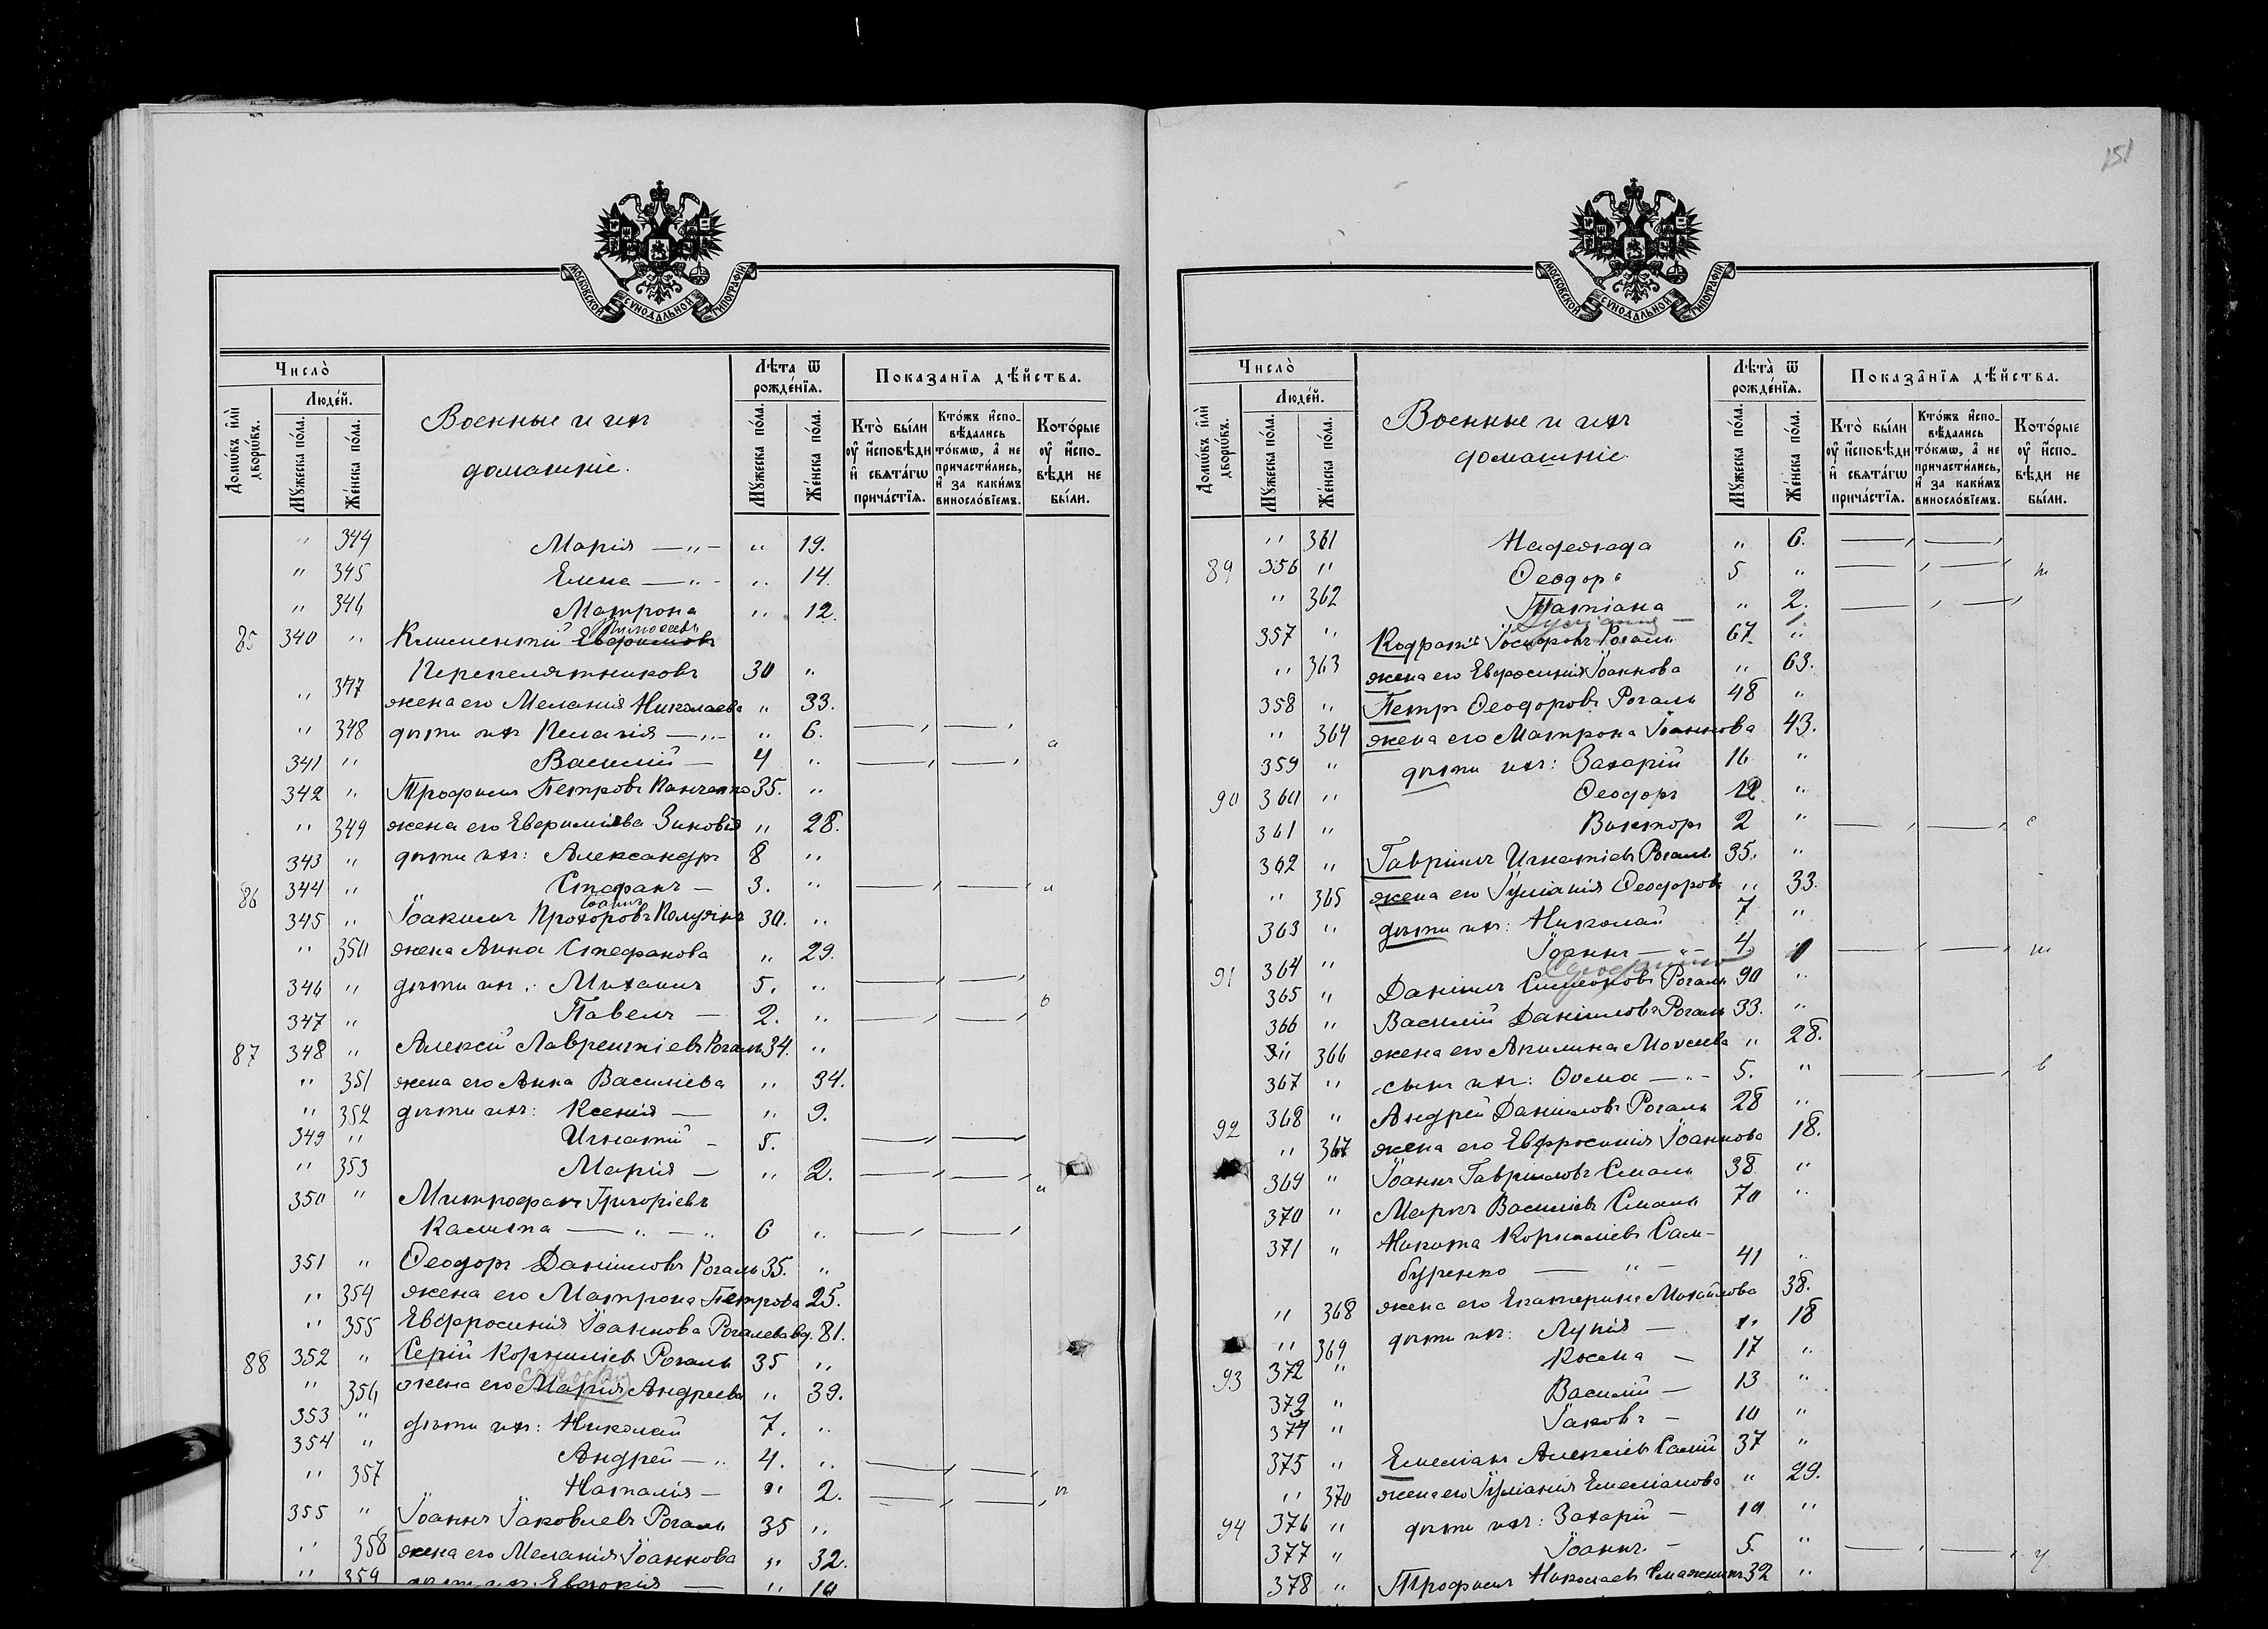 151
МОСКОВСКОЙ СѴНОДАЛЬНОЙ ТИПОГРАФІИ
Число̀
Людéй.
Домѡ́въ и҆лѝ дворѡ́въ.
Мꙋ́жеска по́ла.
Же́нска по́ла.
Военные и ихъ
домашніе.
Лѣ́та ѿ рожде́нїѧ.
Мꙋ́жеска по́ла.
Же́нска по́ла.
Показа́нїѧ дѣ́йства.
Кто̀ бы́ли ᲂу҆ и҆сповѣди и҆ свѧта́гѡ прича́стїѧ.
Кто́жъ и҆спо-вѣ́дались то́кмѡ, а҆ не причасти́лись, и҆ за каки́мъ винослóвїемъ.
Кото́рые ᲂу҆ и҆спо-вѣди не бы́ли.
" 344 Марія — " — " 19.
" 345 Елена — " - " 14.
" 346 Матрона " 12.
85 340 " Климентій Евфимовъ
Перепелятниковъ 30 "
" 347 жена его Меланія Николаева " 33.
" 348 дѣти ихъ Пелагія — " — " 6.
341 " Василій — 4 "
342 " Трофимъ Петровъ Панченко 35. "
" 349 жена его Евфиміева Зиновія " 28.
343 " дѣти ихъ: Александръ 8 "
86 344 " Стефанъ — 3. "
345 " Іоакимъ Прохоровъ 30. "
" 350 жена Анна Стефанова " 29.
346 " дѣти ихъ: Михаилъ 5. "
347 " Павелъ — 2. "
87 348 " Алексій Лаврентіевъ Рогаль 34. "
" 351 жена его Анна Василіева " 34.
" 352 дѣти ихъ: Ксенія — " 9.
349 " Игнатій - 5.
" 353 Марія — " 2.
350 " Митрофанъ Григоріевъ
Калита — " — " 6 "
351 " Ѳеодоръ Даніиловъ Рогаль 35. "
" 354 жена его Матрона Петрова 25.
" 355 Евфросинія Іоаннова Рогалева вд. 81.
88 352 " Сергій Корниліевъ Рогаль 35 "
" 356 жена его Марія Андреева " 39.
353 " дѣти ихъ: Николай 7. "
354 " Андрей — " 4. "
" 357 Наталія — " 2.
355 " Іоаннъ Іаковлевъ Рогаль 35 "
" 358 жена его Меланія Іоаннова " 32.
" 359 дѣти ихъ: Евдокія — " 10
МОСКОВСКОЙ СѴНОДАЛЬНОЙ ТИПОГРАФІИ
Число̀
Людéй.
Домѡ́въ и҆лѝ дворѡ́въ.
Мꙋ́жеска по́ла.
Же́нска по́ла.
Военные и ихъ
домашніе
Лѣ́та ѿ рожде́нїѧ.
Мꙋ́жеска по́ла.
Же́нска по́ла.
Показа́нїѧ дѣ́йства.
Кто̀ бы́ли ᲂу҆ и҆сповѣди и҆ свѧта́гѡ прича́стїѧ.
Кто́жъ и҆спо-вѣ́дались то́кмѡ, а҆ не причасти́лись, и҆ за каки́мъ винослóвїемъ.
Кото́рые ᲂу҆ и҆спо-вѣди не бы́ли.
" 361 Надежда " 6.
89 356 " Ѳеодоръ 5 "
" 362 Татіана " 2.
357 " Кодратъ Рогаль 67 "
" 363 жена его Евфросинія Іоаннова " 63.
358 " Петръ Ѳеодоровъ Рогаль 48 "
" 364 жена его Матрона Іоаннова 43.
359 " дѣти ихъ: Захарій 16 "
90 360 " Ѳеодоръ 12 "
361 " Викторъ 2 "
362 " Гавріилъ Игнатіевъ Рогаль 35. "
" 365 жена его Іуліанія Ѳеодорова " 33.
363 " дѣти ихъ: Николай 7 "
364 " Іоаннъ — " — 4.
91 365 " Даніилъ Симеоновъ Рогаль 90 "
366 " Василій Даніиловъ Рогаль 33. "
" 366 жена его Акилина Моисеева " 28.
367 " сынъ ихъ: Ѳома — " - 5. "
92 368 " Андрей Даніиловъ Рогаль 28 "
" 367 жена его Евфросинія Іоаннова 18.
369 " Іоаннъ Гавріиловъ Смаль 38 "
370 " Маркъ Василіевъ Смаль 70 "
371 " Никита Корниліевъ Сам-
буренко — " — 41 "
" 368 жена его Екатерина Михайлова 38.
" 369 дѣти ихъ: Лукія — " 18
93 372 " Косма — 17 "
373 " Василій — 13 "
374 " Іаковъ — 10 "
375 " Емеліанъ Алексіевъ Салій 37 "
" 370 жена его Іуліанія Емеліанова " 29.
94 376 " дѣти ихъ: Захарій — 10 "
377 " Іоаннъ - 5. "
378 " Трофимъ Николаевъ 32 "